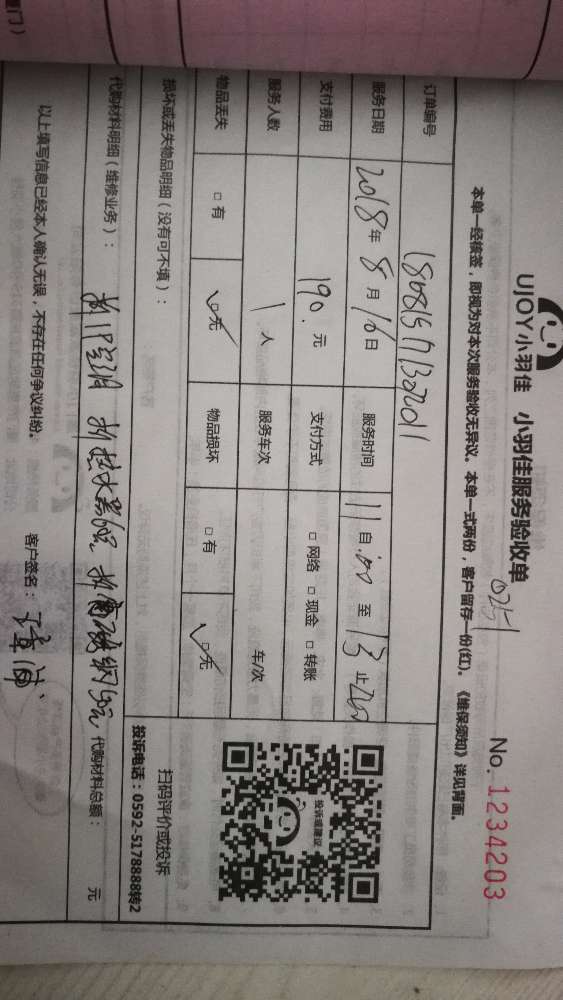 UJOY小羽佳 小羽佳服务验收单
0251
No. 1234203
本单一经核签，即视为对本次服务验收无异议。本单一式两份，客户留存一份(红)。《维保须知》详见背面。
订单编号
服务日期 2018年8月16日 服务时间 11自:00 至 13止
支付费用 190. 元 支付方式 □ 网络 □ 现金 □ 转账
服务人数 1 人 服务车次 车/次
物品丢失 □ 有 □ 无 物品损坏 □ 有 □ 无
损坏或丢失物品明细（没有可不填）：
投诉或建议
扫码评价或投诉
投诉电话：0592-5178888转2
代购材料明细（维修业务）： 代购材料总额： 元
以上填写信息已经本人确认无误，不存在任何争议纠纷。
客户签名：